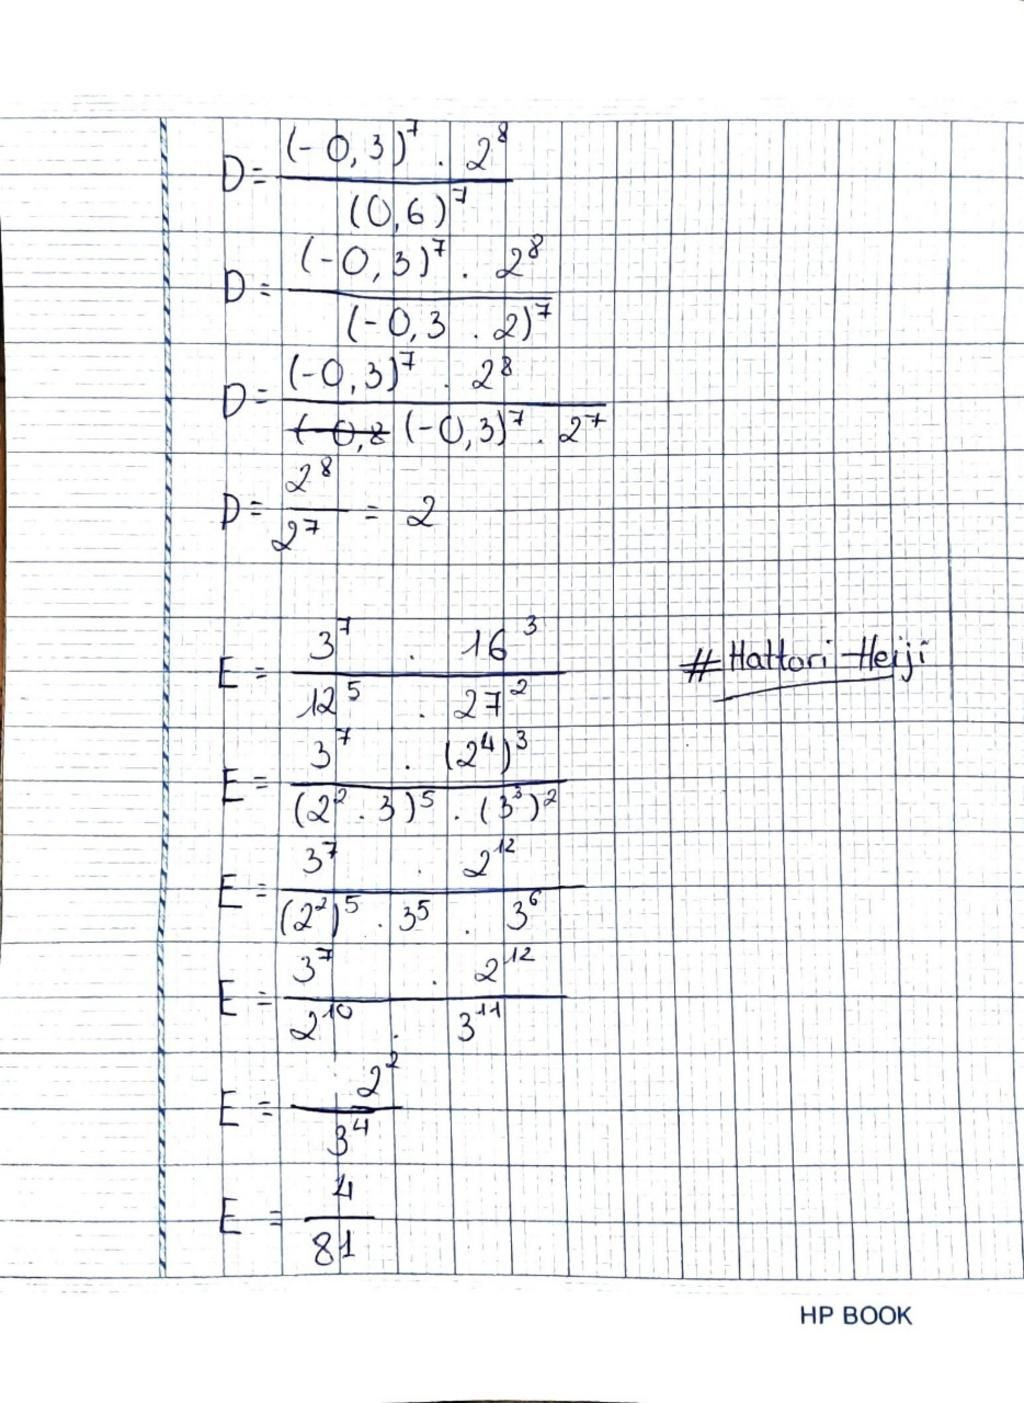 D = (-0,3)⁷ . 2⁸ / (0,6)⁷
D = (-0,3)⁷ . 2⁸ / (-0,3 . 2)⁷
D = (-0,3)⁷ . 2⁸ / (-0,3)⁷ . 2⁷
D = 2⁸ / 2⁷ = 2
E = 3⁷ . 16³ / 12⁵ . 27²
# Hattori Heiji
E = 3⁷ . (2⁴)³ / (2² . 3)⁵ . (3³)²
E = 3⁷ . 2¹² / (2²)⁵ . 3⁵ . 3⁶
E = 3⁷ . 2¹² / 2¹⁰ . 3¹¹
E = 2² / 3⁴
E = 4 / 81
HP BOOK